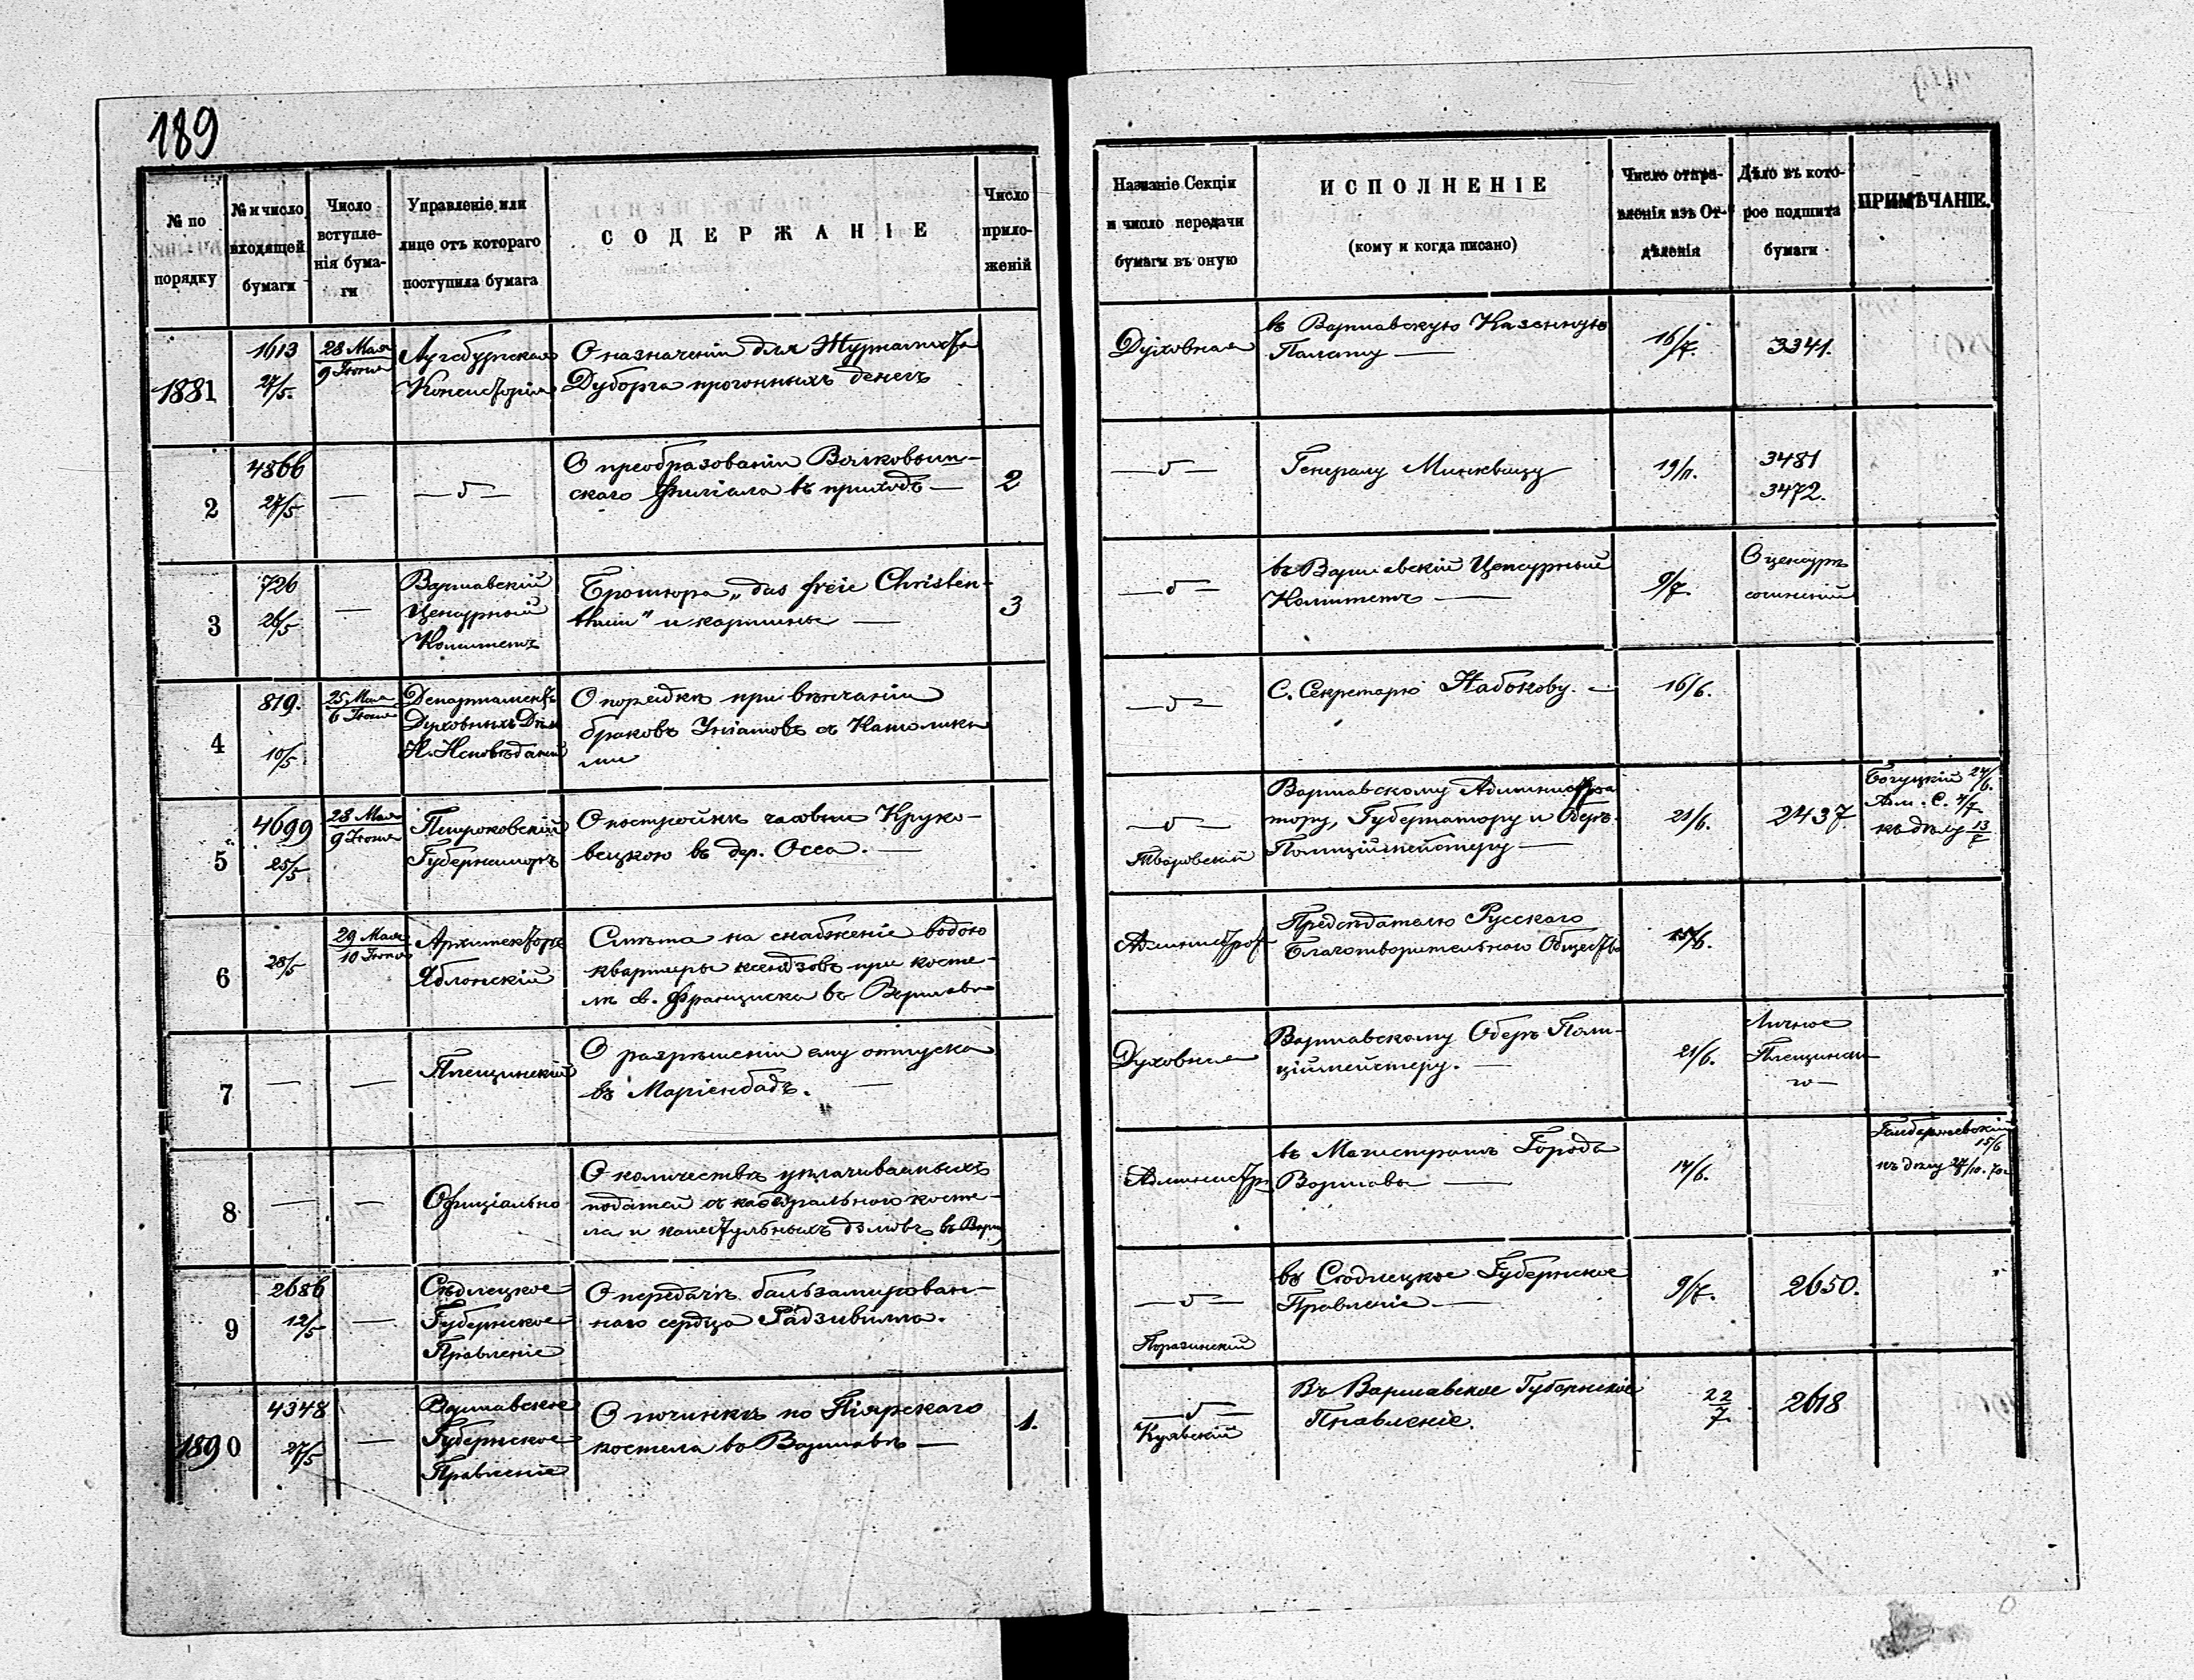 189
№ по порядку
№ и число входящей бумаги
Число вступле-
нія бума-
ги
Управленіе или
лице отъ котораго
поступила бумага
СОДЕРЖАНІЕ
Число
прило-
женій
Названіе Секціи
и число передачи
бумаги въ оную
ИСПОЛНЕНІЕ
(кому и когда писано)
Число отпра-
вленія изъ От-
дѣленія
Дѣло въ кото-
рое подшита
бумаги
ПРИМѢЧАНІЕ.
1881
1613
27/5.
28 Мая
9 Іюня
Аугсбургская
Консисторія
О назначеніи для
Дуборга прогонныхъ денегъ
Духовная
въ Варшавскую Казенную
Палату —
16/7.
3341.
2
4866
27/5
—
—„—
О преобразованіи
скаго филіала въ приходъ —
2
—„—
Генералу Минквицу
19/11.
3481
3472.
3
726
26/5
—
Варшавскій
Цензурный
Комитетъ
Брошюра „das freie Christen-
thum" и картины —
3
—„—
въ Варшавскій Цензурный
Комитетъ —
9/7.
О цензурѣ
сочиненій
4
819.
10/5
25 Мая
6 Іюня
Департаментъ
Духовныхъ Дѣлъ
И. Исповѣданій
О порядкѣ при вѣнчаніи
браковъ Уніатовъ съ Католика
ми
—„—
С. Секретарю Набокову. —
16/6.
5
4699
25/5
28 Мая
9 Іюня
Піотроковскій
Губернаторъ
О постройкѣ часовни Круко-
вецкою въ дер. Осса. —
—„—
Варшавскому Администра
тору, Губернатору и Оберъ-
Полиціймейстеру —
21/6.
2437
24/6.
къ дѣлу 13/7
6
28/5
29 Мая
10 Іюня
Архитекторъ
Яблонскій
Смѣта на снабженіе водою
квартиры ксендзовъ при косте-
лѣ св. Франциска въ Варшавѣ
Администрат
Предсѣдателю Русскаго
Благотворительнаго Общества
15/6.
7
—
—
Плещинскій
О разрѣшеніи ему отпуска
въ Маріенбадъ. —
Духовная
Варшавскому Оберъ Поли-
ціймейстеру. —
21/6.
Личное
Плещинска
го —
8
—
—
Офиціально
О количествѣ уплачиваемыхъ
податей съ каѳедральнаго косте-
ла и капитульныхъ домовъ въ Варш
Администр
въ Магистратъ Города
Варшавы —
14/6.
15/6
къ дѣлу
9
2686
12/5
—
Сѣдлецкое
Губернское
Правленіе
О передачѣ бальзамирован-
наго сердца Радзивилла.
—„—
въ Сѣдлецкое Губернское
Правленіе —
9/7.
2650.
1890
4348
27/5
—
Варшавское
Губернское
Правленіе
О починкѣ по Піярскаго
костела въ Варшавѣ —
1.
—„—
Куявскій
Въ Варшавское Губернское
Правленіе.
22/7.
2618